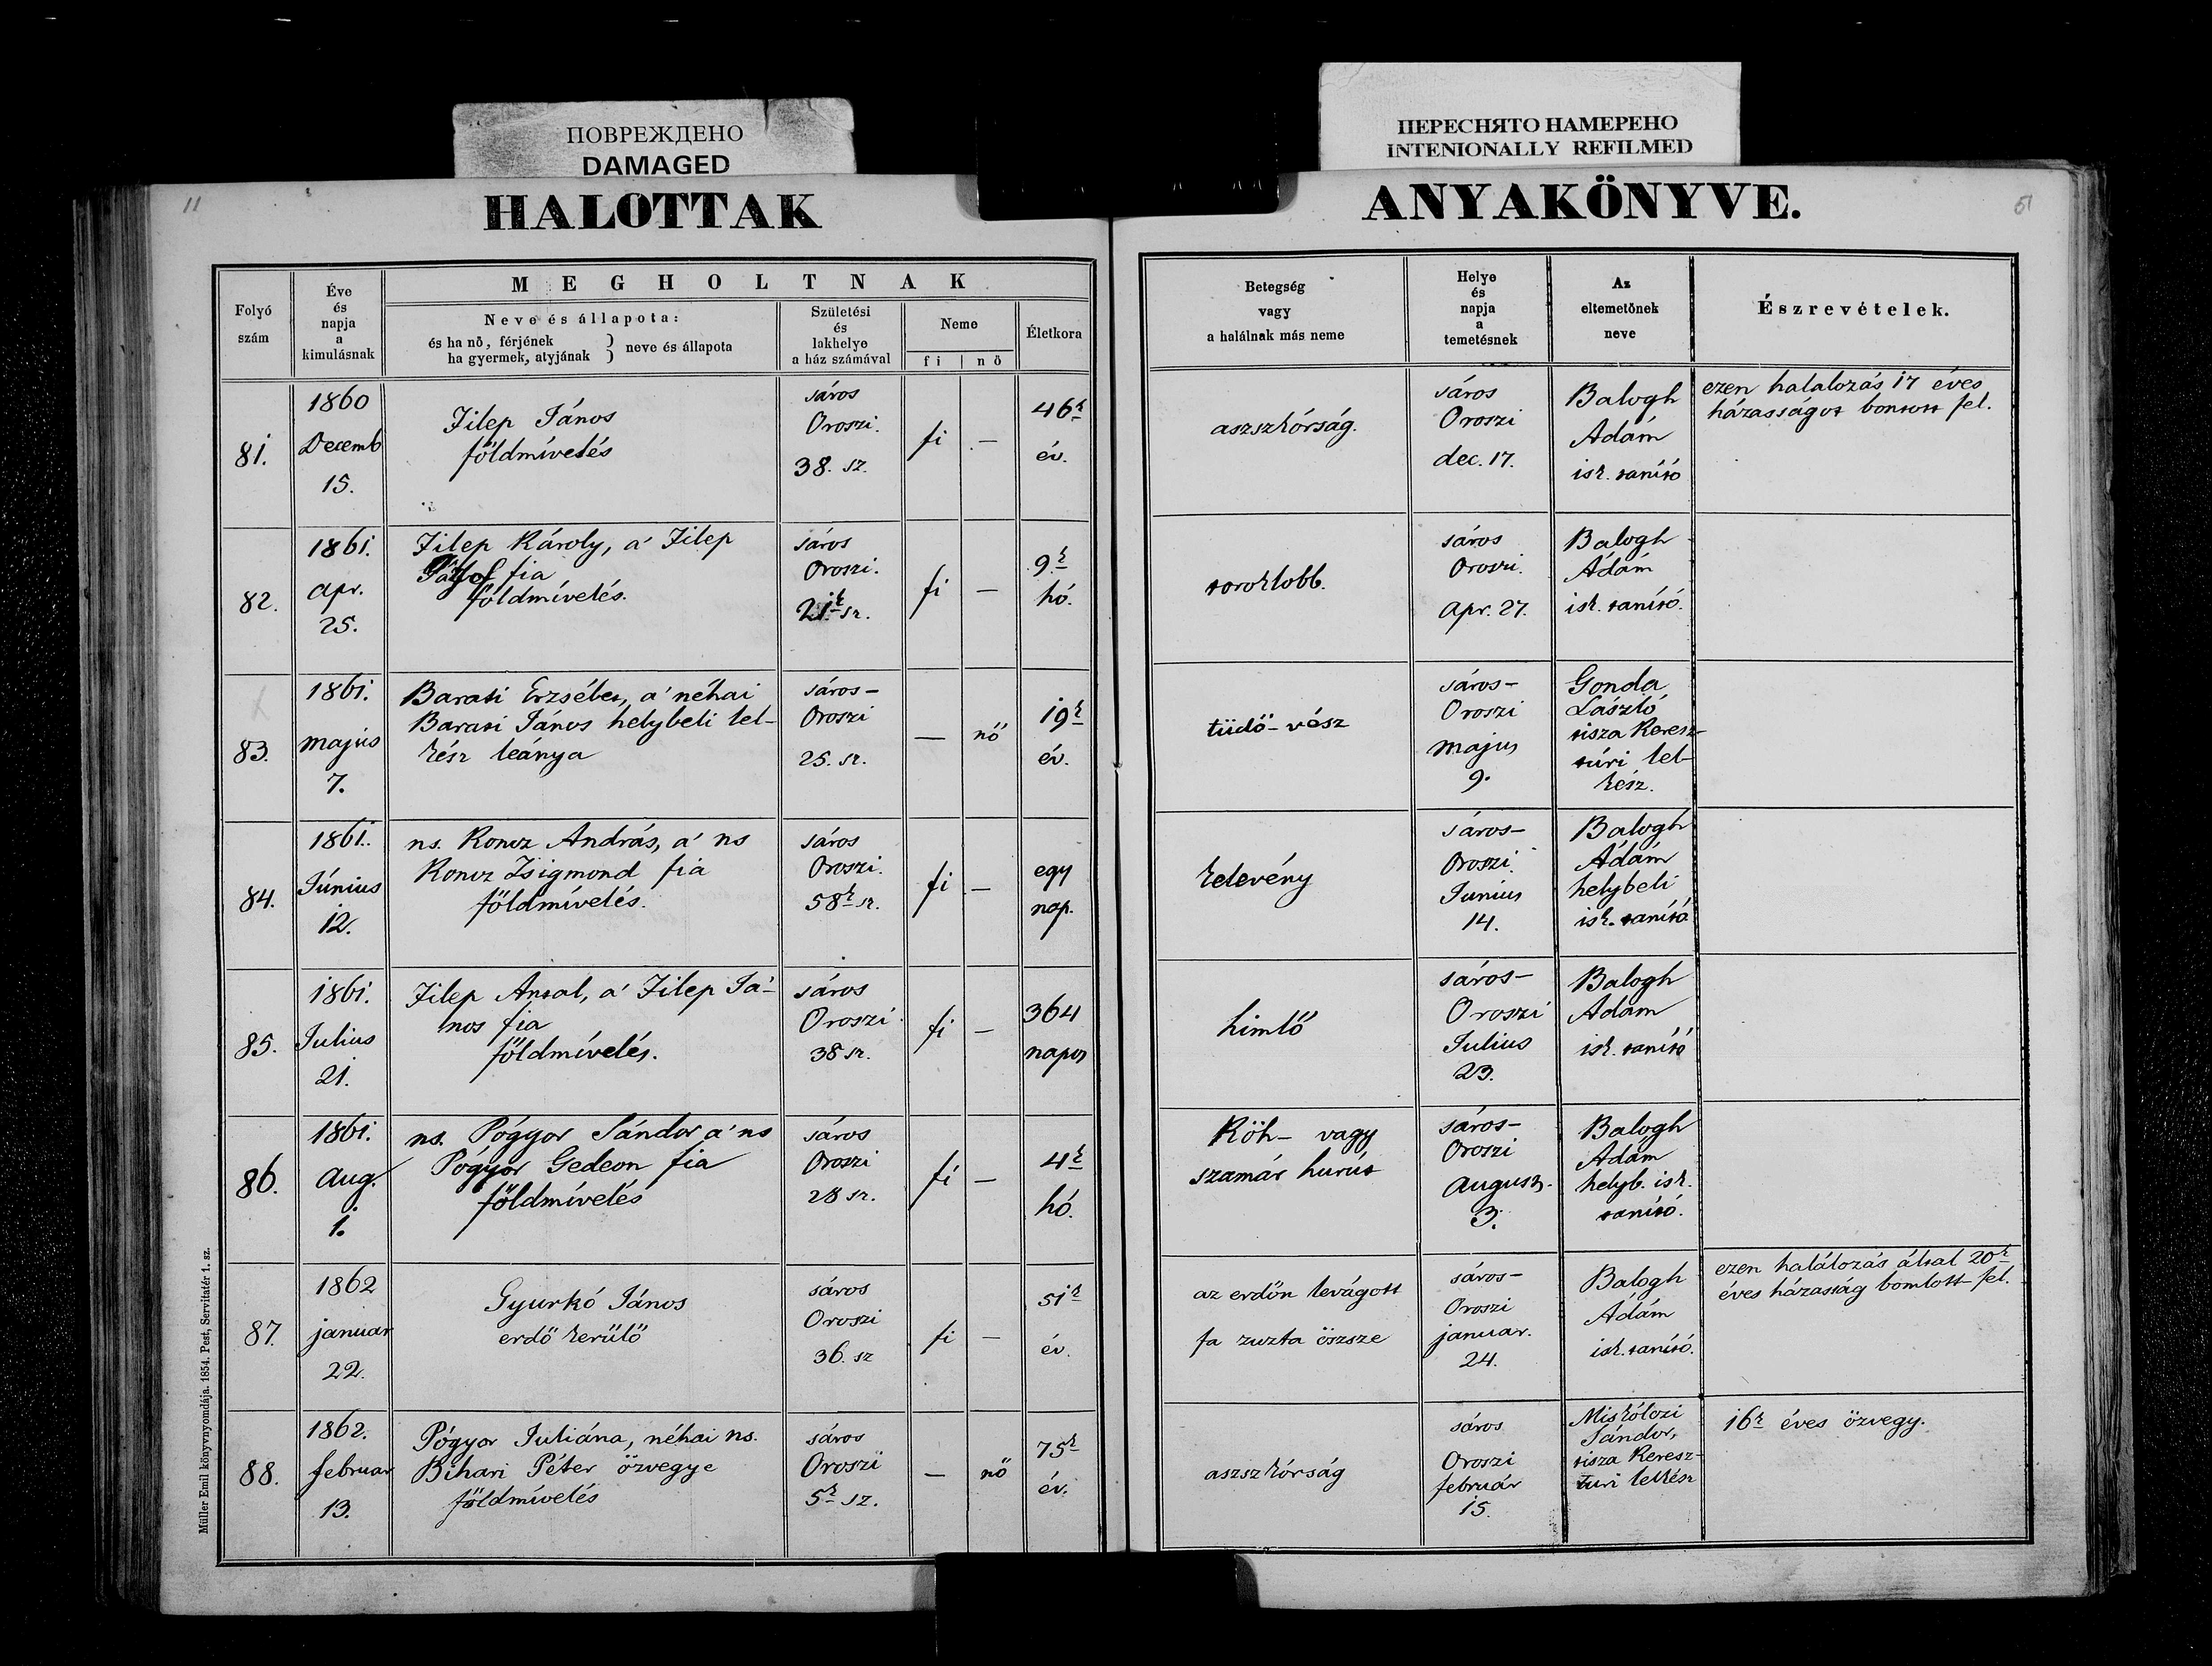 ПОВРЕЖДЕНО
DAMAGED
ПЕРЕСНЯТО НАМЕРЕНО
INTENIONALLY REFILMED
11
HALOTTAK
ANYAKÖNYVE.
51
Folyó
szám
Éve
és
napja
a
kimulásnak
MEGHOLTNAK
Neve és állapota:
és ha nő, férjének
ha gyermek, atyjának } neve és állapota
Születési
és
lakhelye
a ház számával
Neme
fi | nö
Életkora
Betegség
vagy
a halálnak más neme
Helye
és
napja
a
temetésnek
Az
eltemetőnek
neve
Észrevételek.
81.
1860
Decemb
15.
Filep János
földmívelés
sáros
Oroszi.
38. sz.
fi
—
46k
év.
aszszkórság.
sáros
Oroszi
dec. 17.
Balogh
Adám
isk. tanító
ezen halalozás 17 éves
házasságot bontott fel.
82.
1861.
apr.
25.
Filep Károly, a' Filep
fia
földmívelés.
sáros
Oroszi.
21k sz.
fi
—
9.k
hó.
toroklobb.
sáros
Oroszi.
apr. 27.
Balogh
Ádám
isk. tanító.
83.
1861.
május
7.
Barati Erzsébet, a' néhai
Barati János helybeli lel-
kész leánya
sáros-
Oroszi
25. sz.
—
nő
19k
év.
tüdő-vész
sáros-
Oroszi
majus
9.
Gonda
László
tisza Keresz-
túri lel-
kész.
84.
1861.
Június
12.
ns. Koncz András, a' ns
Koncz Zsigmond fia
földmívelés.
sáros
Oroszi.
58k sz.
fi
—
egy
nap.
kelevény
sáros-
Oroszi.
Junius
14.
Balogh
Ádám
helybeli
isk. tanító
85.
1861.
Julius
21.
Filep Antal, a' Filep Já-
nos fia
földmívelés.
sáros
Oroszi.
38 sz.
fi
—
364
napos
himlő
sáros-
Oroszi
Julius
23.
Balogh
Adám
isk. tanító
86.
1861.
aug.
1.
ns. Pógyor Sándor a' ns
Pógyor Gedeon fia
földmívelés
sáros
Oroszi
28 sz.
fi
—
4k
hó.
Köh- vagy
szamár hurút
sáros-
Oroszi
August.
3.
Balogh
Adám
helyb. isk.
tanító.
87.
1862
januar
22.
Gyurkó János
erdő kerülő
sáros
Oroszi
36. sz
fi
—
51k
év.
az erdőn levágott
fa zuzta öszsze
sáros-
Oroszi
januar.
24.
Balogh
Ádám
isk. tanító.
ezen halálozás által 20k
éves házasság bomlott fel.
88.
1862.
februar
13.
Pógyor Juliána, néhai ns.
Bihari Péter özvegye
földmívelés
sáros
Oroszi
5k sz.
—
nő
75k
év.
aszszkórság
sáros
Oroszi
február
15.
Miskólczi
Sándor,
tisza Keresz-
turi lelkész
16k éves özvegy.
Müller Emil könyvnyomdája. 1854. Pest, Servitatér 1. sz.